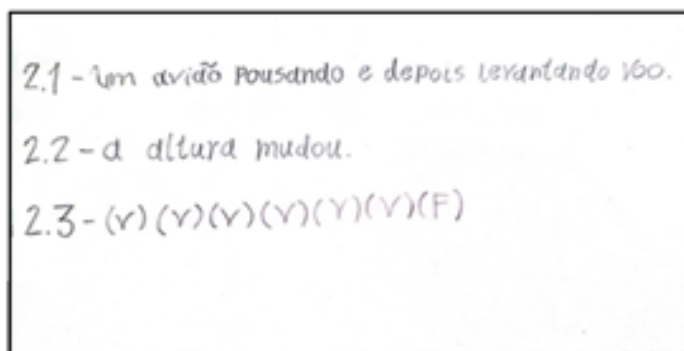 2.1 - Um avião pousando e depois levantando voo.
2.2 - a altura mudou.
2.3 - (V) (V) (V) (V) (V) (V) (F)